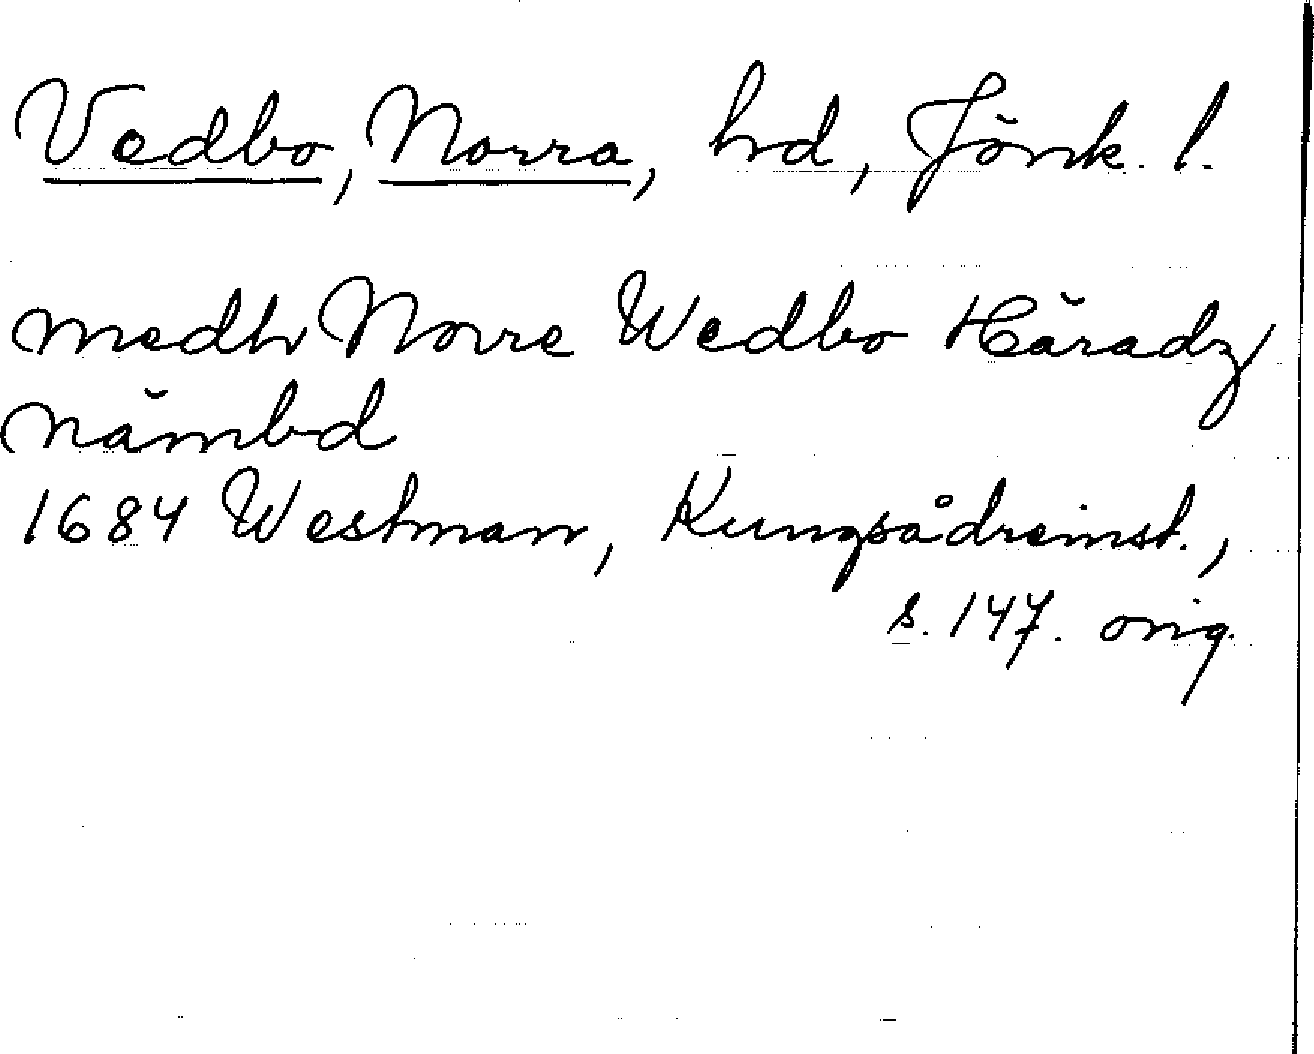 Vedbo, Norra, hd, Jönk. l.
medh Norre Wedbo Häradz
Nämbd
1684 Westman, Kungsådreinst.,
s. 147. orig.